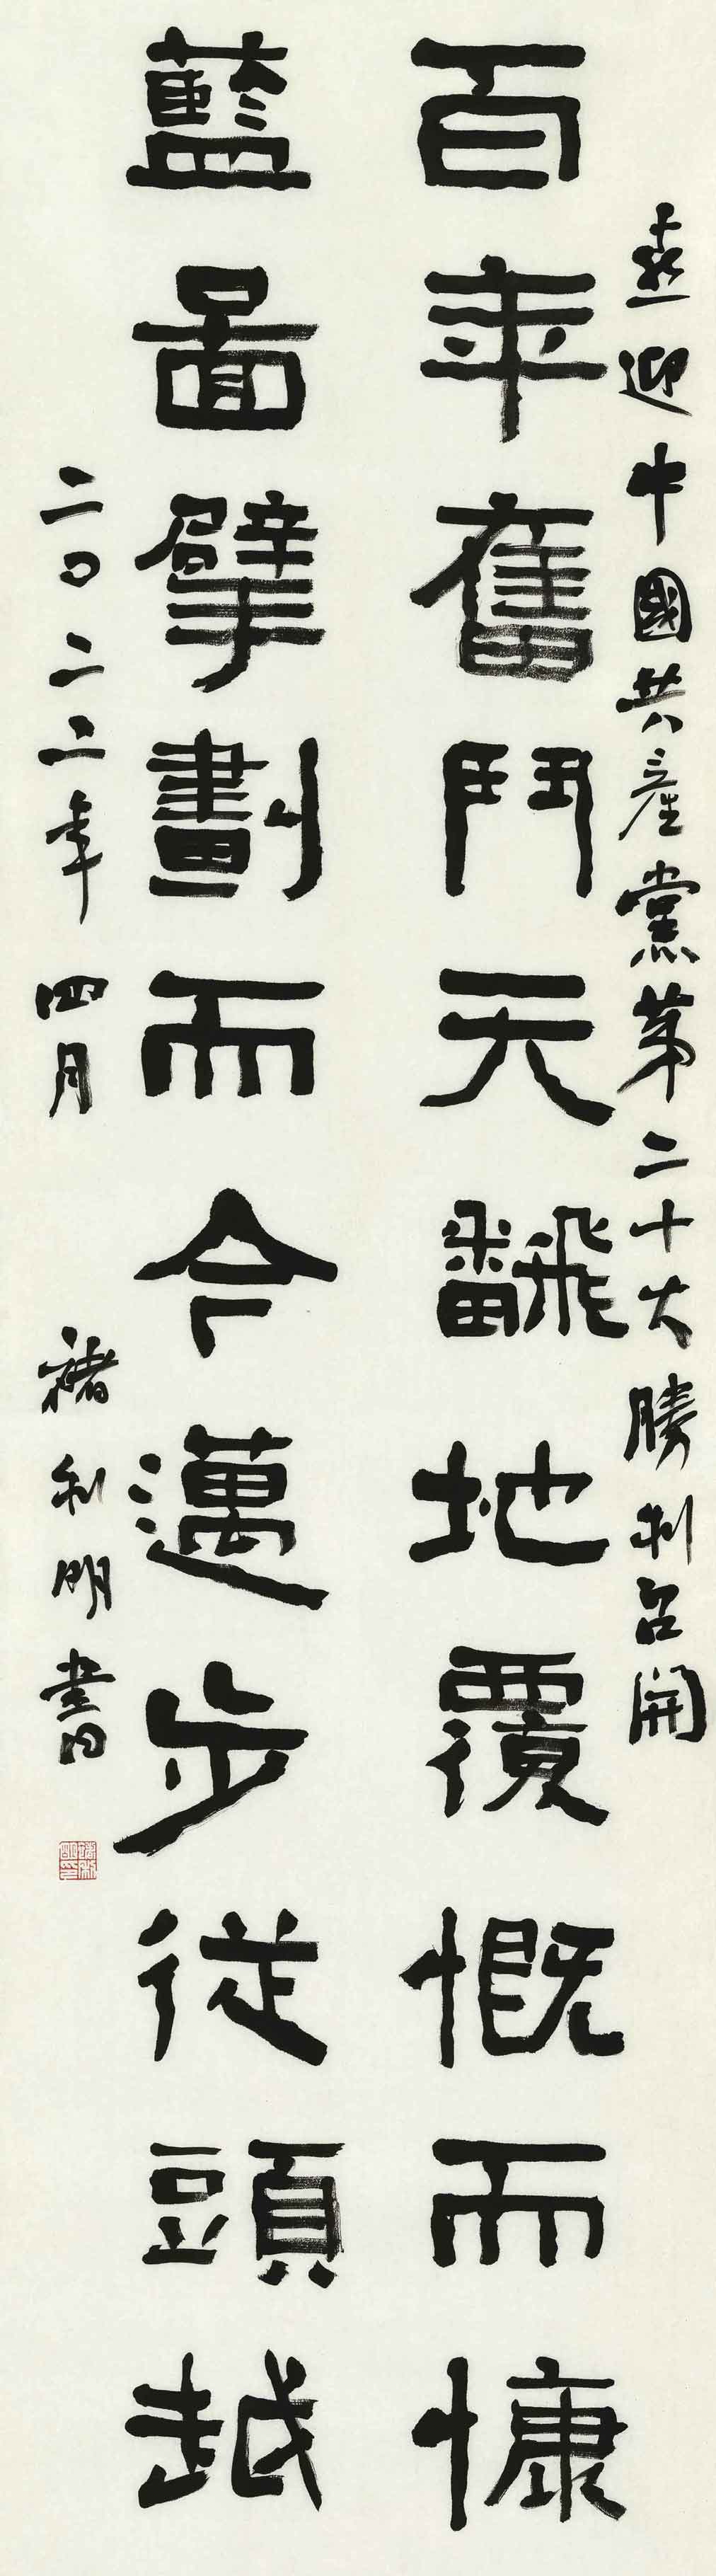 喜迎中國共產黨第二十大勝利召開
百年奮鬥天飜地覆慨而慷
藍圖擘劃而今邁步従頭越
二〇二二年四月 褚利明書